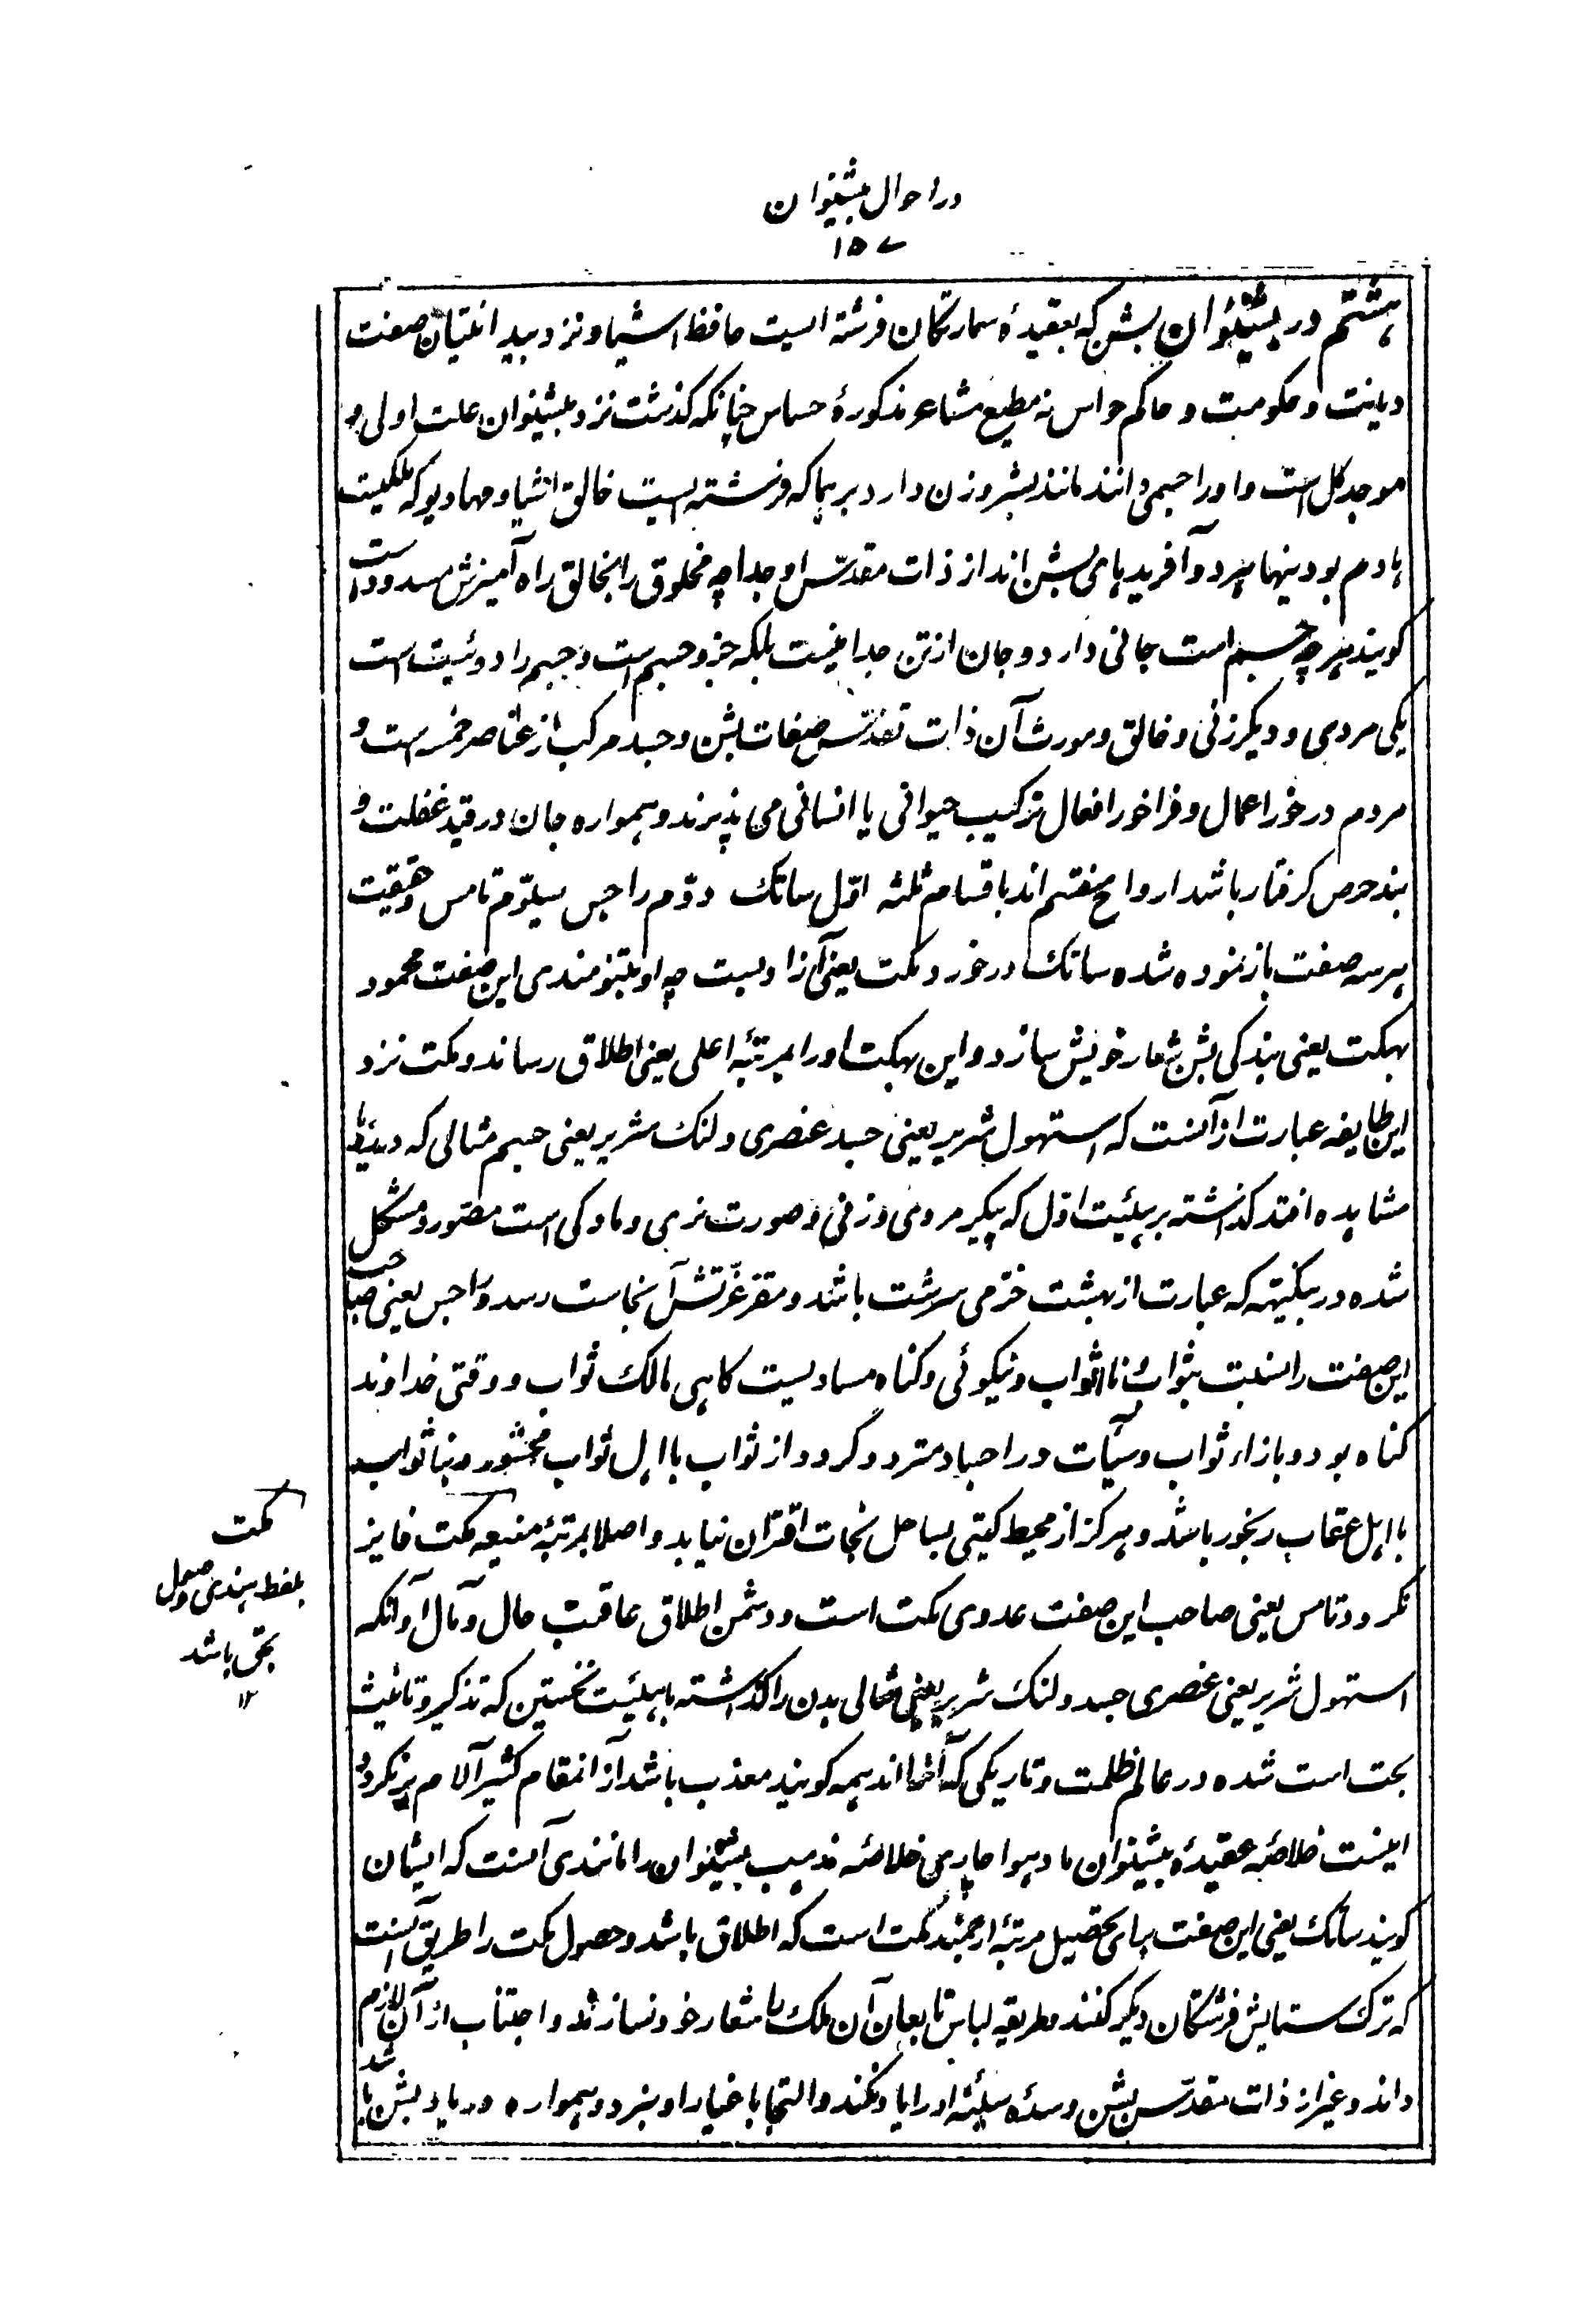 در احوال بشنوان
۱۵۷
هشتم در بیشنوان بشن که بعقیدهٔ سمارتکان فرشته ایست حافظ اشیا و نزد بیدانتیان صفت
دیانت و حکومت و حاکم حواس نه مطیع مشاعر مذکورهٔ حساس چنانکه گذشت نزد بیشنوان علت اولی و
موجد کل است و اورا جسمی دانند مانند بشر و زن دارد برهما که فرشته ایست خالق اشیا و مهادیو که ملکیست
هادم بود اینها هردو آفریده‌های بشن اند از ذات مقدس او جدا چه مخلوق را بخالق راه آمیزش مسدود است
کویند هرچه جسم است جانی دارد و جان از تن جدا نیست بلکه جزو جسم است و جسم را دو هیئت است
یکی مردی و دیکر زنی و خالق و مورث آن ذات تقدس صفات بشن و جسد مرکب از عناصر خمسه است و
مردم درخور اعمال و فراخور افعال ترکیب حیوانی یا انسانی می پذیرند و همواره جان در قید غفلت و
بند حرص کرفتار باشد ارواح منقسم اند باقسام ثلثه اوّل ساتک دوّم راجس سیوّم تامس و حقیقت
هر سه صفت باز نموده شده ساتک درخور مکت یعنی آزادیست چه او بتنومندی این صفت محمود
بهکت یعنی بندکی بشن شعار خویش سازد و این بهکت اورا بمرتبهٔ اعلی یعنی اطلاق رساند و مکت نزد
این طایفه عبارت از آنست که استهول شریر یعنی جسد عنصری و لنک شریر یعنی جسم مثالی که در رؤیا
مشاهده افتد کذاشته بر هیئت اوّل که پیکر مردمی و زنی و صورت نری و مادکی است مصور و مشکل
شده در بیکنتهه که عبارت از بهشت خرّمی سرشت باشد و مقر عزّتش آنجاست رسد و راجس یعنی صاحب
این صفت را نسبت بثواب و ناثواب و نیکوئی و کناه مساویست کاهی مالک ثواب و وقتی خداوند
کناه بود و بازاء ثواب و سیآت در اجساد متردد گردد از ثواب با اهل ثواب محشور و بناثواب
با اهل عقاب رنجور باشد و هرکز از محیط کیتی بساحل نجات اقتران نیابد و اصلا بمرتبهٔ منیعه مکت فایز
نکردد و تامس یعنی صاحب این صفت عدوی مکت است و دشمن اطلاق عاقبت حال و مآل او آنکه
استهول شریر یعنی عنصری جسد و لنک شریر یعنی مثالی بدن را کذاشته با هیئت نخستین که تذکیر و تانیث
بحت است شده در عالم ظلمت و تاریکی که آنرا اندهه کویند معذب باشد از آن مقام کثیر آلام برنکردد
اینست خلاصهٔ عقیدهٔ بیشنوان مادهوا چاری خلاصهٔ مذهب بیشنوان رامانندی آنست که ایشان
کویند ساتک یعنی این صفت برای تحصیل مرتبهٔ ارجمند مکت است که اطلاق باشد و حصول مکت را طریق آنست
که ترک ستایش فرشتکان دیکر کنند و طریقه لباس تابعان آن ملک را شعار خود نسازند و اجتناب از آن لازم
دانند و غیر از ذات مقدّس بشن و سدهٔ سنیهٔ او را یاد نکند و التجا باغیار او نبرد و همواره در یاد بشن باشد
مکت
بلفظ هندی وصول
بحق باشد
۱۲